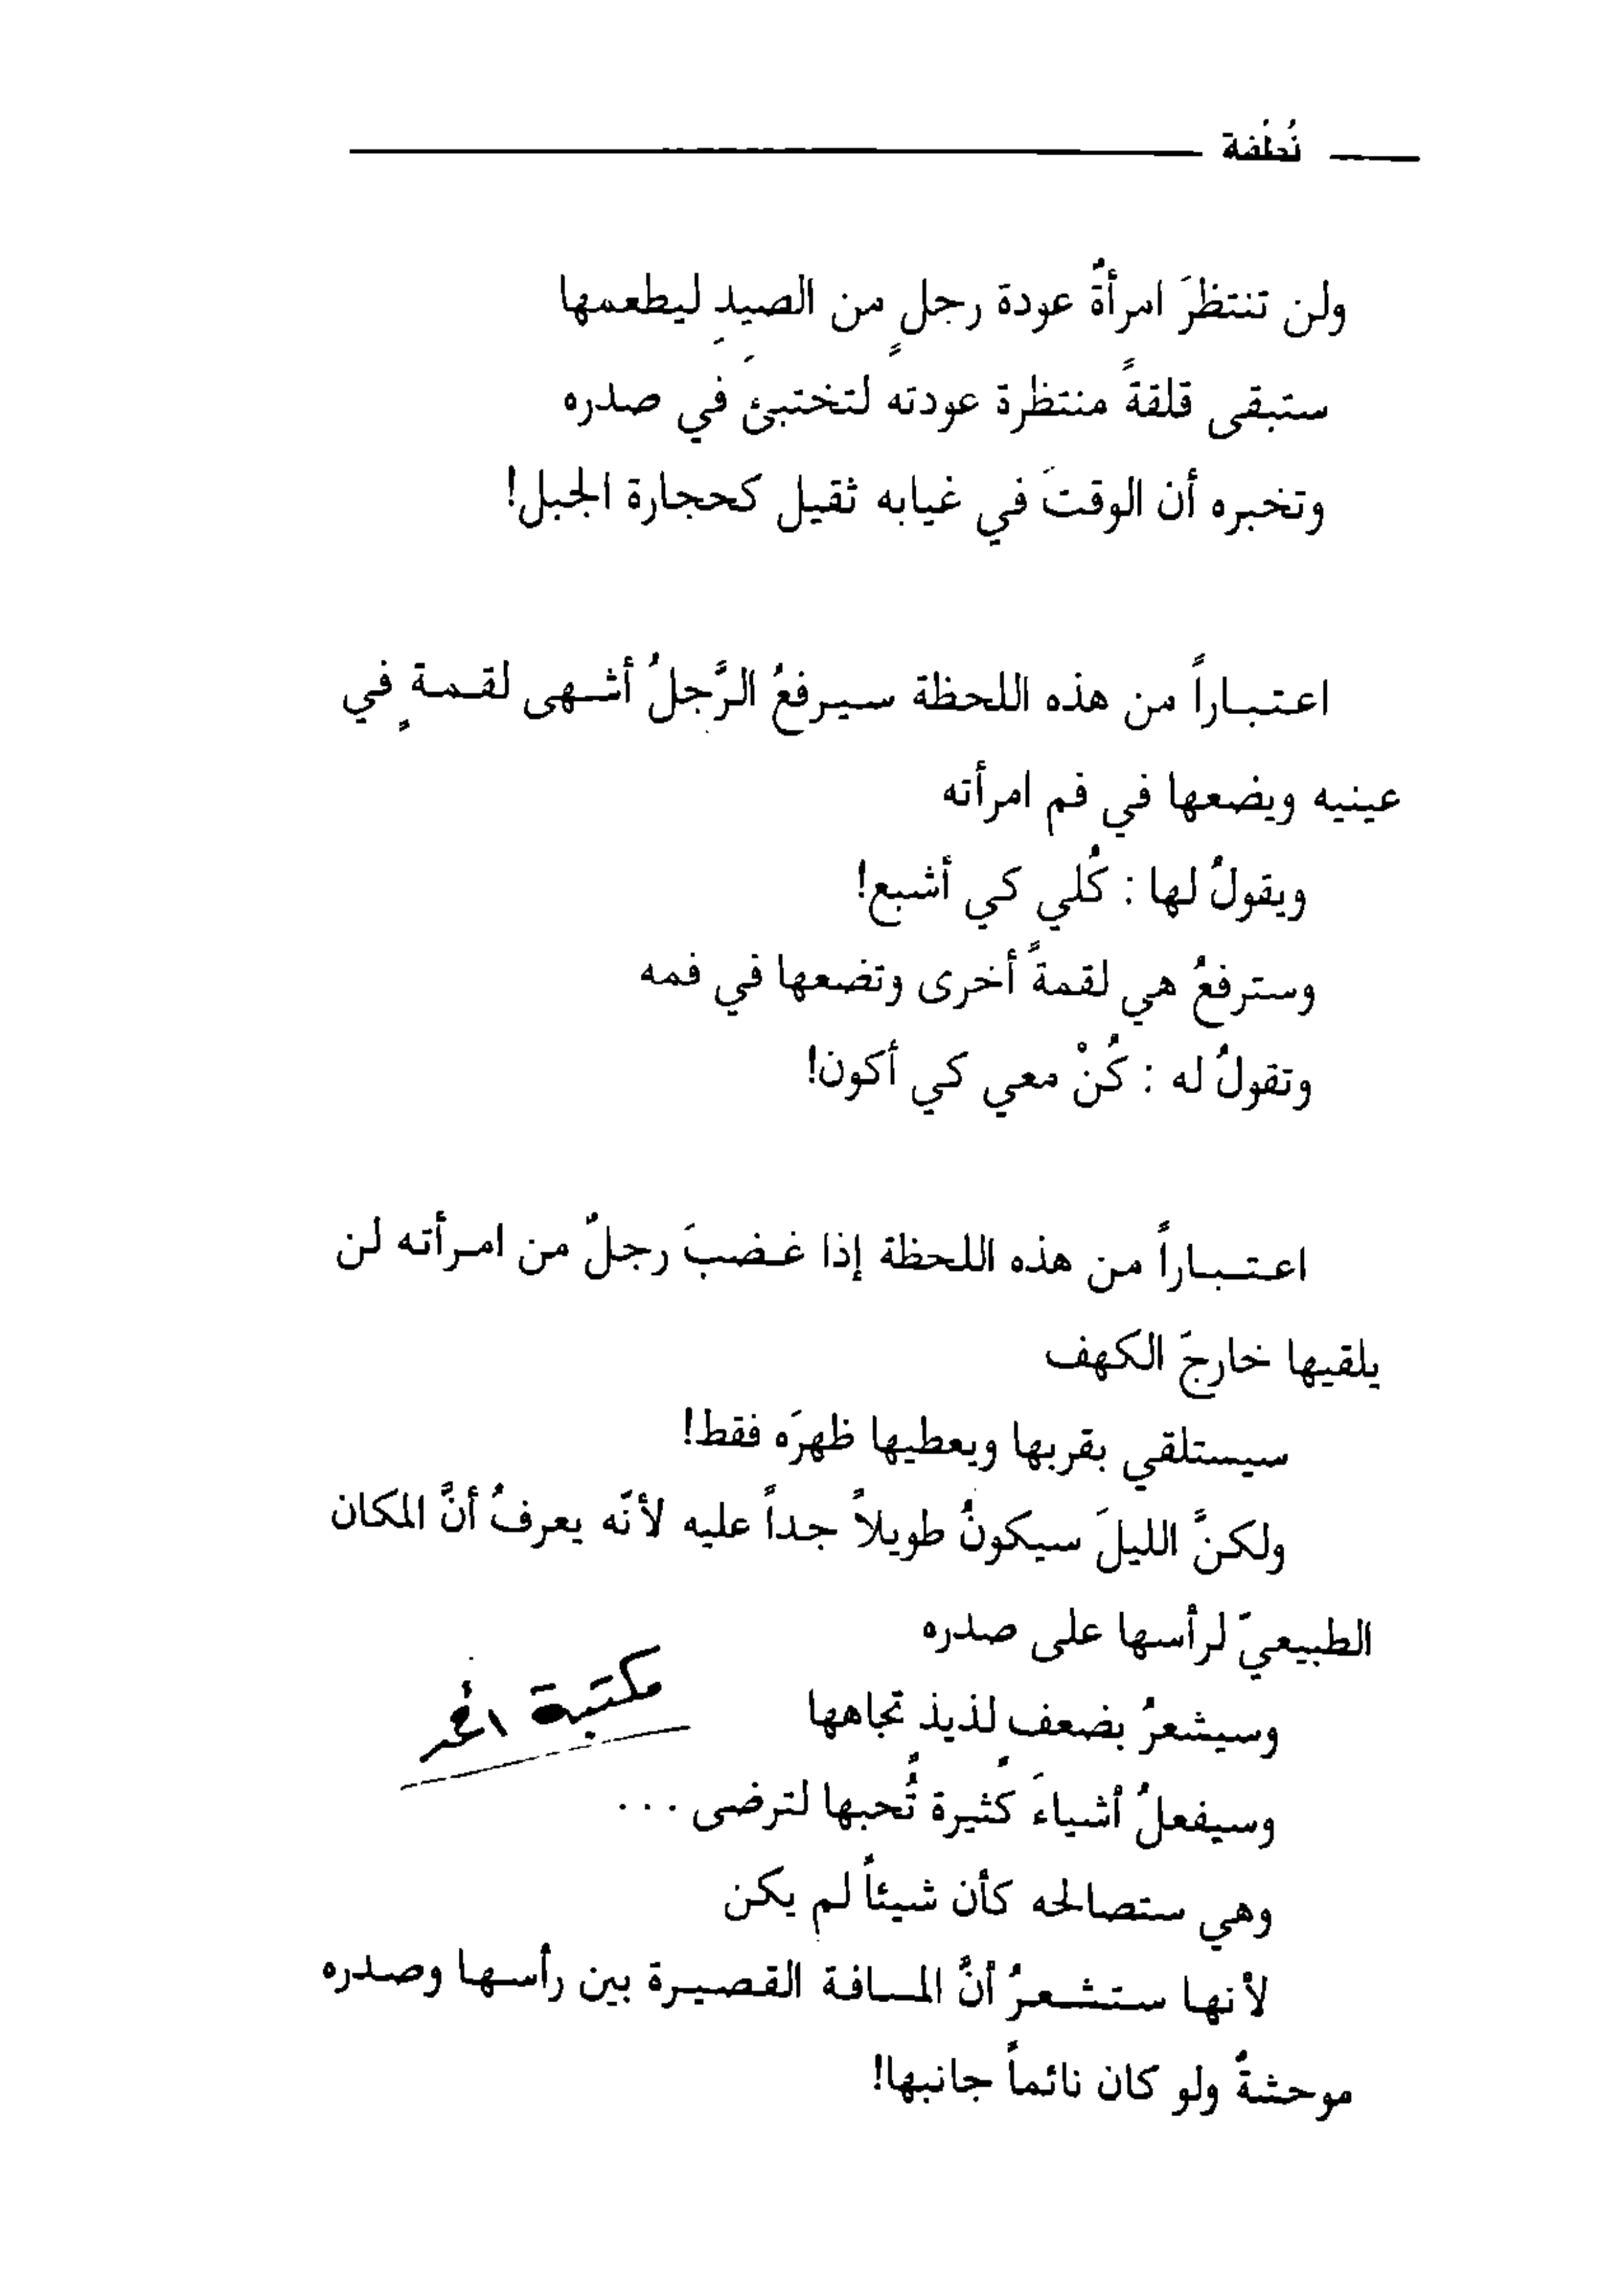 نُطْفة
ولن تنتظرَ امرأةٌ عودة رجلٍ من الصيدِ ليطعمها
ستبقى قلقةً منتظرة عودته لتختبئَ في صدره
وتخبره أن الوقتَ في غيابه ثقيل كحجارة الجبل!
اعتباراً من هذه اللحظة سيرفعُ الرَّجلُ أشهى لقمةٍ في
عينيه ويضعها في فم امرأته
ويقولُ لها : كُلي كي أشبع!
وسترفعُ هي لقمةً أخرى وتضعها في فمه
وتقولُ له : كُنْ معي كي أكون!
اعتباراً من هذه اللحظة إذا غضبَ رجلٌ من امرأته لن
يلقيها خارجَ الكهف
سيستلقي بقربها ويعطيها ظهرَه فقط!
ولكنَّ الليلَ سيكونُ طويلاً جداً عليه لأنّه يعرفُ أنَّ المكان
الطبيعيّ لرأسها على صدره
وسيشعرُ بضعف لذيذ تجاهها
مكتبة
وسيفعلُ أشياءَ كُثيرة تُحبها لترضى ...
وهي ستصالحه كأن شيئاً لم يكن
لأنها ستشعرُ أنَّ المسافة القصيرة بين رأسها وصدره
موحشةٌ ولو كان نائماً جانبها!